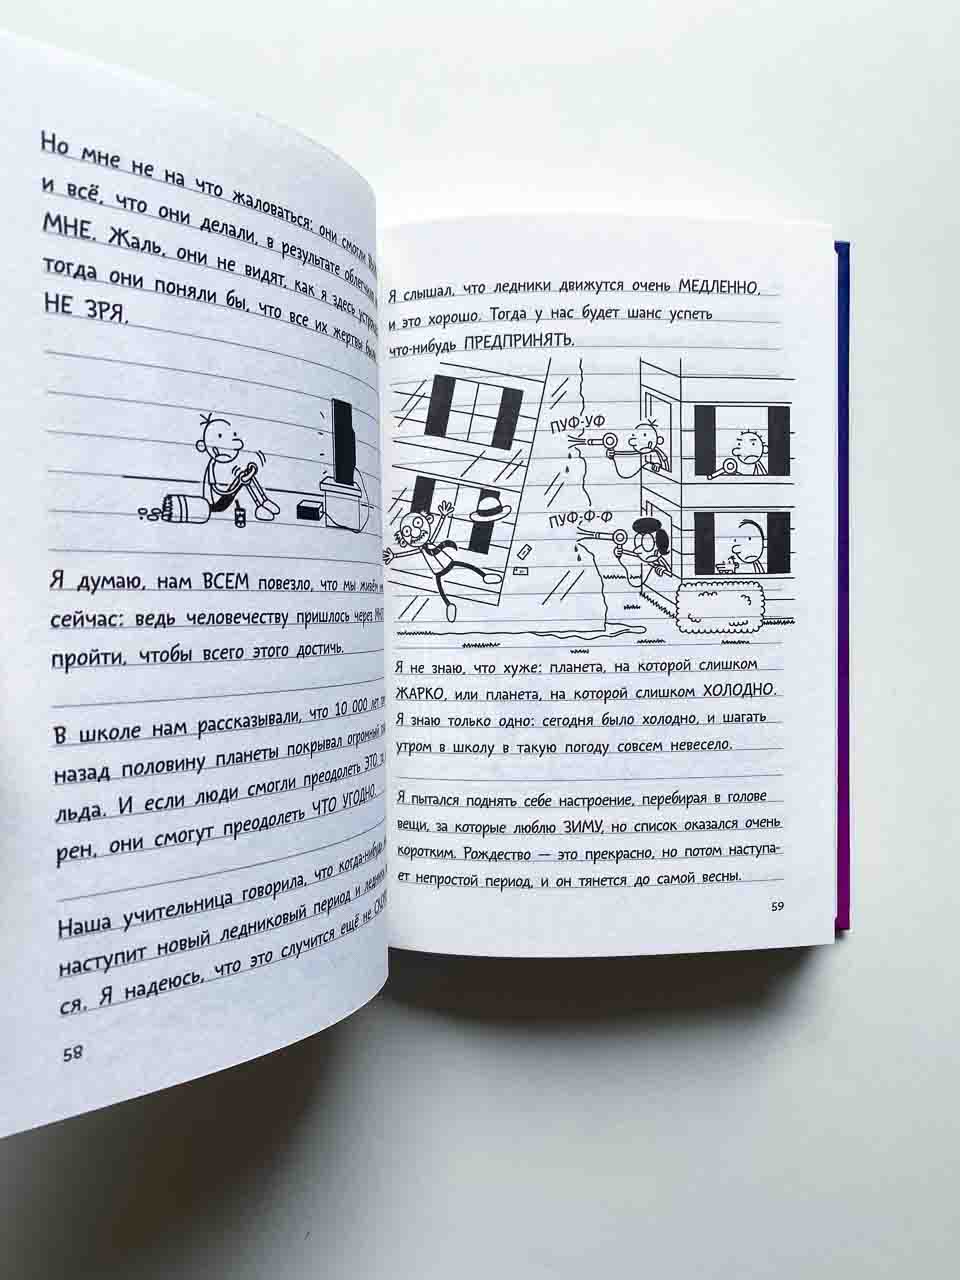 Но мне не на что жаловаться: они смогли
и всё, что они делали, в результате облегчило
МНЕ. Жаль, они не видят, как я здесь
тогда они поняли бы, что все их жертвы были
НЕ ЗРЯ.
Я думаю, нам ВСЕМ повезло, что мы живём
сейчас: ведь человечеству пришлось через
пройти, чтобы всего этого достичь.
В школе нам рассказывали, что 10 000 лет
назад половину планеты покрывал огромный
льда. И если люди смогли преодолеть ЭТО,
рен, они смогут преодолеть ЧТО УГОДНО.
Наша учительница говорила, что когда-нибудь
наступит новый ледниковый период и
ся. Я надеюсь, что это случится ещё не
58
Я слышал, что ледники движутся очень МЕДЛЕННО,
и это хорошо. Тогда у нас будет шанс успеть
что-нибудь ПРЕДПРИНЯТЬ.
ПУФ-УФ
ПУФ-Ф-Ф
Я не знаю, что хуже: планета, на которой слишком
ЖАРКО, или планета, на которой слишком ХОЛОДНО.
Я знаю только одно: сегодня было холодно, и шагать
утром в школу в такую погоду совсем невесело.
Я пытался поднять себе настроение, перебирая в голове
вещи, за которые люблю ЗИМУ, но список оказался очень
коротким. Рождество — это прекрасно, но потом наступа-
ет непростой период, и он тянется до самой весны.
59